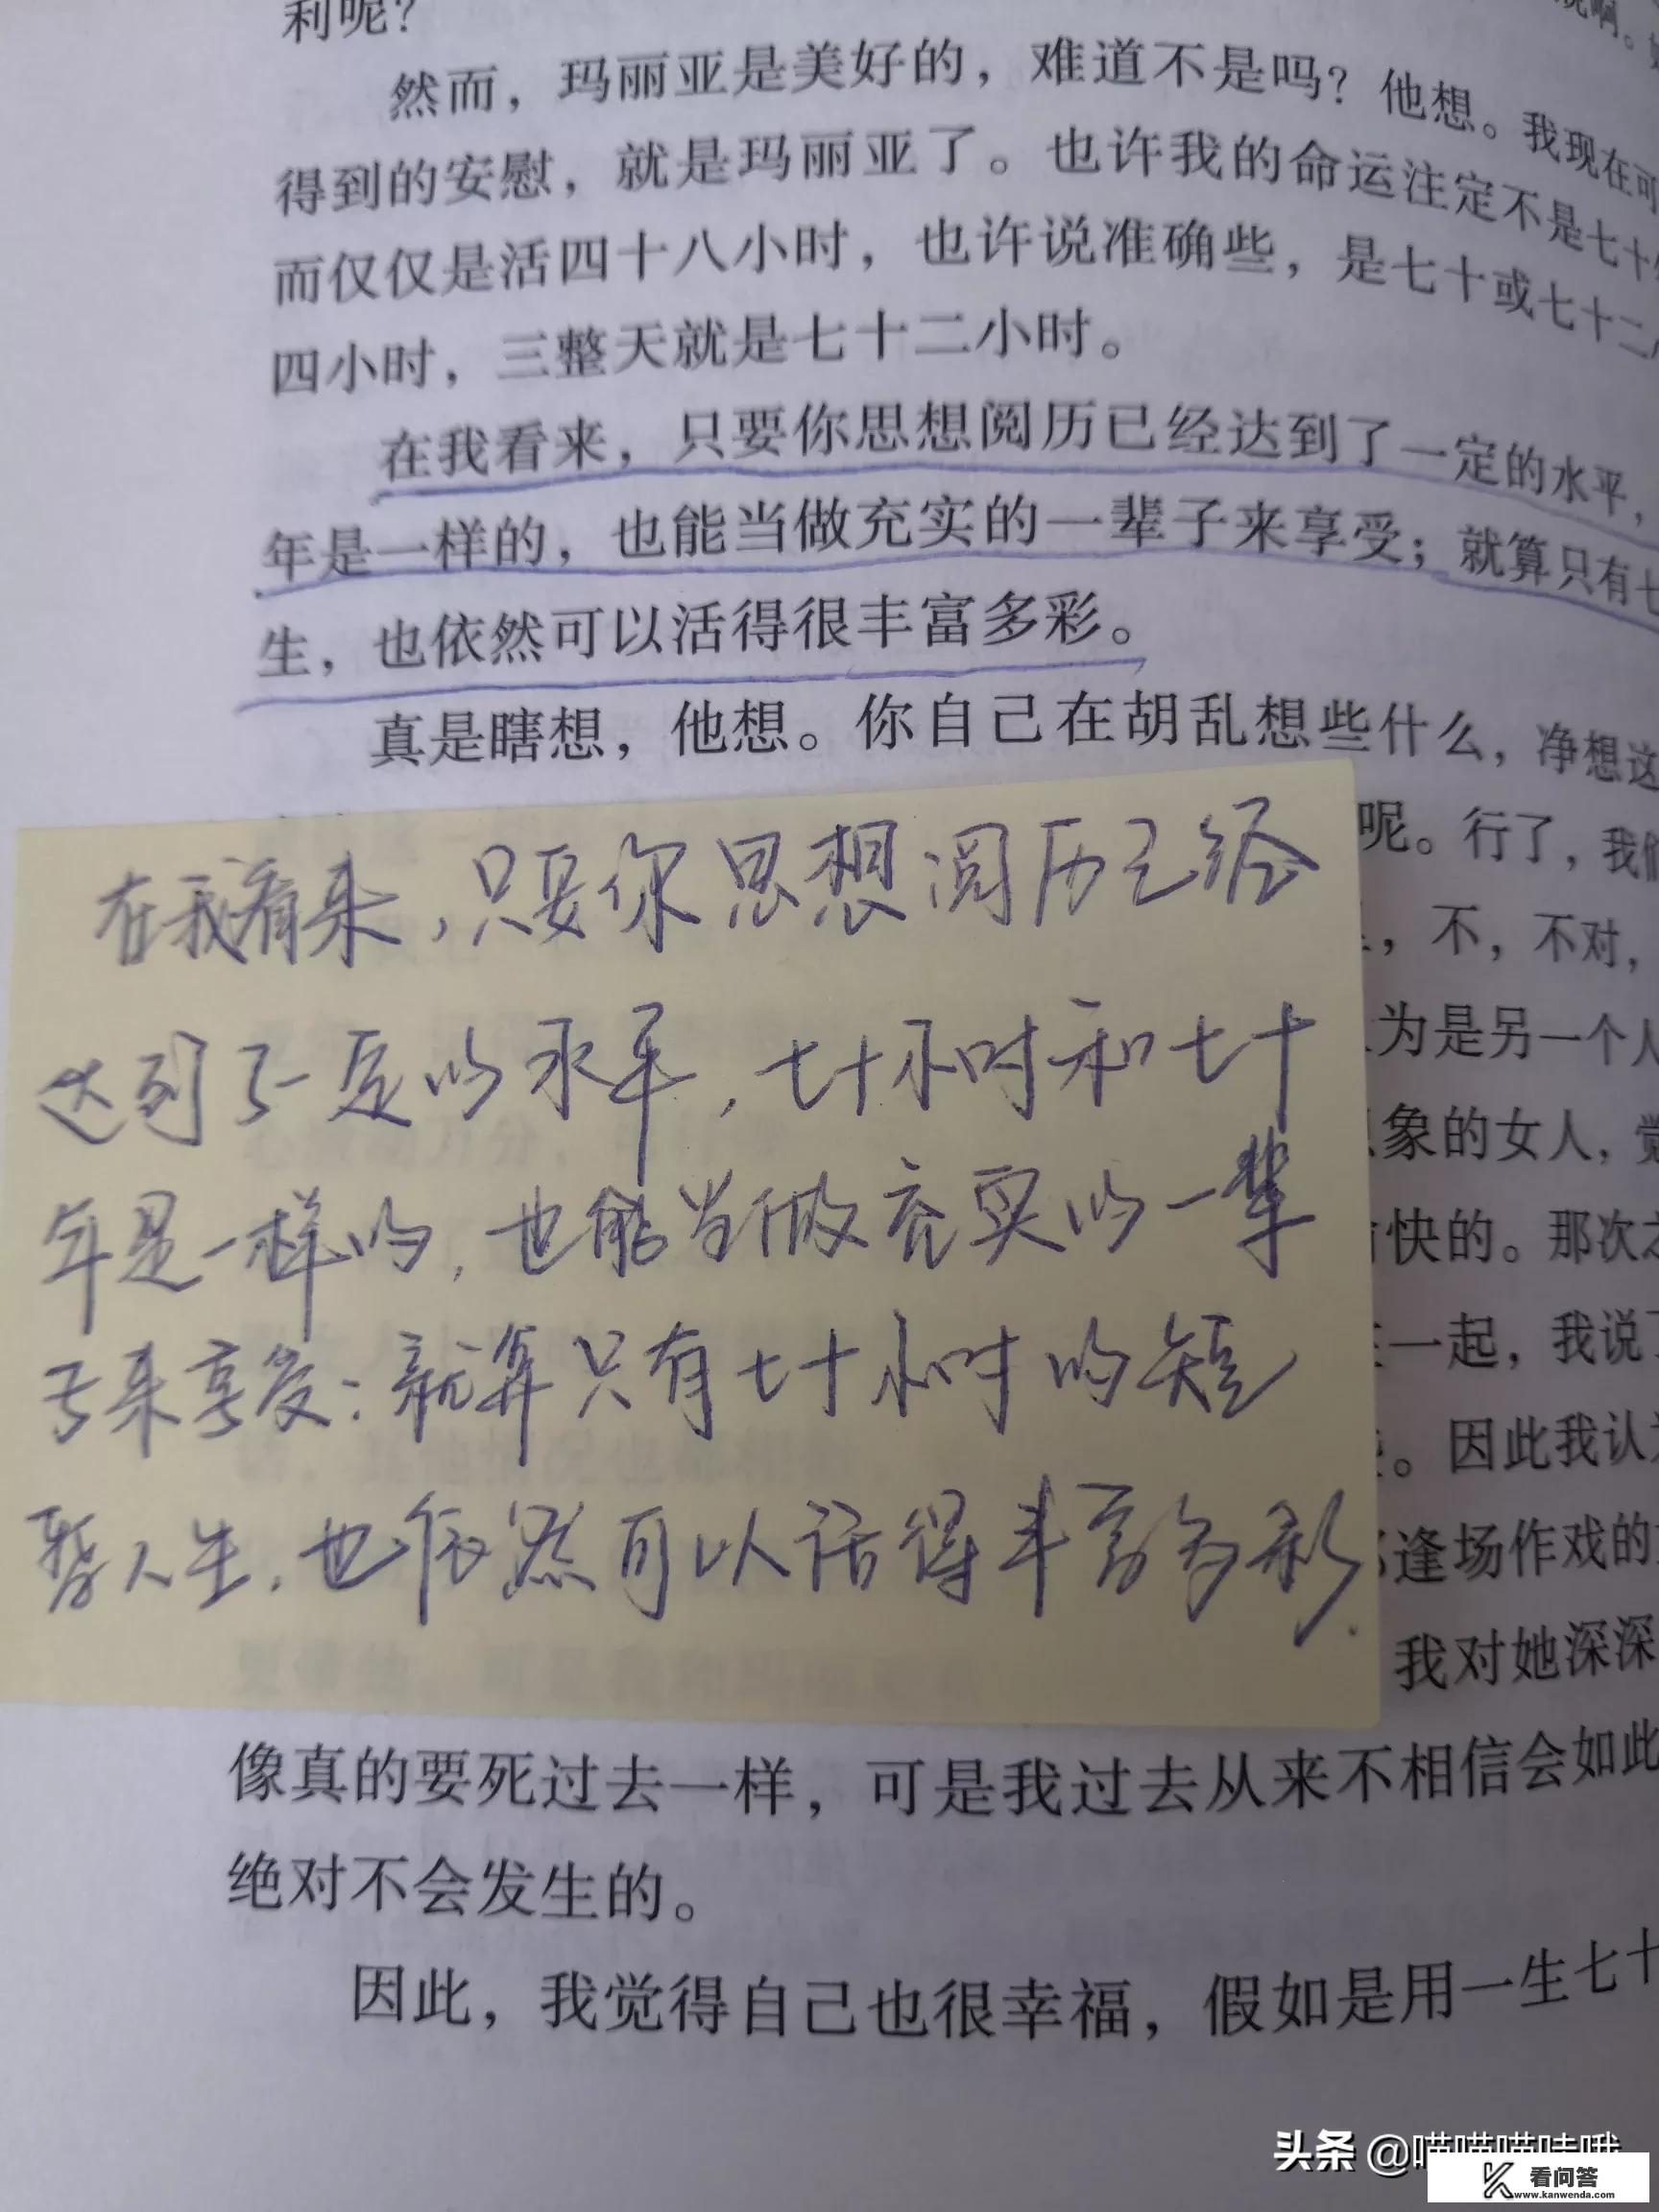 利呢？
然而，玛丽亚是美好的，难道不是吗？他想。我现在可
得到的安慰，就是玛丽亚了。也许我的命运注定不是七十
而仅仅是活四十八小时，也许说准确些，是七十或七十二
四小时，三整天就是七十二小时。
在我看来，只要你思想阅历已经达到了一定的水平，
年是一样的，也能当做充实的一辈子来享受；就算只有七
生，也依然可以活得很丰富多彩。
真是瞎想，他想。你自己在胡乱想些什么，净想这
呢。行了，我们
，不，不对，
为是另一个人
象的女人，觉
快的。那次
一起，我说
。因此我认
逢场作戏的
我对她深深
在我看来，只要你思想阅历已经
达到了一定的水平，七十小时和七十
年是一样的，也能当做充实的一辈
子来享受；就算只有七十小时的短
暂人生，也依然可以活得丰富多彩.
像真的要死过去一样，可是我过去从来不相信会如此
绝对不会发生的。
因此，我觉得自己也很幸福，假如是用一生七十
头条 @喵喵喵哇哦
看问答
www.kanwenda.com